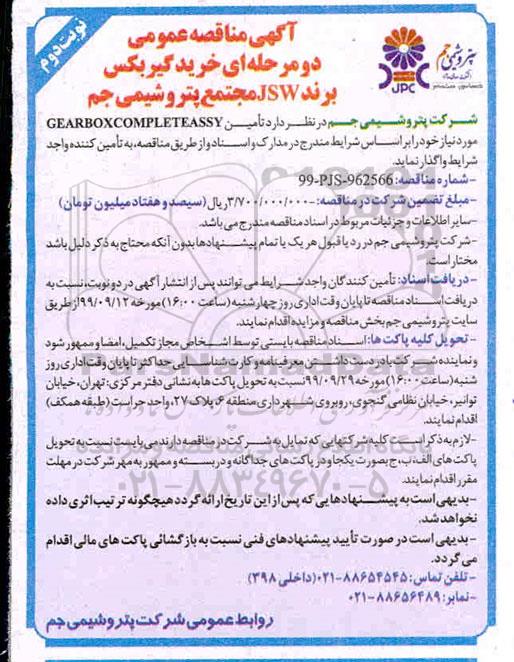 نوبت دوم
آگهی مناقصه عمومی
دو مرحله‌ای خرید گیربکس
برند JSW مجتمع پتروشیمی جم
پتروشیمی جم
JPC
شرکت پتروشیمی جم در نظر دارد تأمین GEARBOXCOMPLETEASSY
مورد نیاز خود را بر اساس شرایط مندرج در مدارک و اسناد و از طریق مناقصه، به تأمین کننده واجد
شرایط واگذار نماید.
-شماره مناقصه: 99-PJS-962566
-مبلغ تضمین شرکت در مناقصه: -۳/۷۰۰/۰۰۰/۰۰۰ریال (سیصد و هفتاد میلیون تومان)
-سایر اطلاعات و جزئیات مربوط در اسناد مناقصه مندرج می‌باشد.
-شرکت پتروشیمی جم در رد یا قبول هر یک یا تمام پیشنهادها بدون آنکه محتاج به ذکر دلیل باشد
مختار است.
-دریافت اسناد: تأمین کنندگان واجد شرایط می توانند پس از انتشار آگهی در دو نوبت، نسبت به
دریافت اسناد مناقصه تا پایان وقت اداری روز چهارشنبه (ساعت ۱۶:۰۰) مورخه ۹۹/۰۹/۱۲ از طریق
سایت پتروشیمی جم بخش مناقصه و مزایده اقدام نمایند.
-تحویل کلیه پاکت ها: اسناد مناقصه بایستی توسط اشخاص مجاز تکمیل، امضا و ممهور شود
و نماینده شرکت با در دست داشتن معرفینامه و کارت شناسایی حداکثر تا پایان وقت اداری روز
شنبه (ساعت ۱۶:۰۰) مورخه ۹۹/۰۹/۲۹ نسبت به تحویل پاکت ها به نشانی دفتر مرکزی: تهران، خیابان
توانیر، خیابان نظامی گنجوی، روبروی شهرداری منطقه ۶، پلاک ۲۷، واحد حراست (طبقه همکف)
اقدام نمایند.
-لازم به ذکر است کلیه شرکتهایی که تمایل به شرکت در مناقصه دارند می بایست نسبت به تحویل
پاکت های الف، ب، ج بصورت یکجا و در پاکت های جداگانه و در بسته و ممهور به مهر شرکت در مهلت
مقرر اقدام نمایند.
-بدیهی است به پیشنهادهایی که پس از این تاریخ ارائه گردد هیچگونه ترتیب اثری داده
نخواهد شد.
-بدیهی است در صورت تأیید پیشنهادهای فنی نسبت به بازگشائی پاکت های مالی اقدام
می گردد.
-تلفن تماس: ۸۸۶۵۴۵۴۵-۰۲۱ (داخلی ۳۹۸)
-نمابر: ۸۸۶۵۶۴۸۹-۰۲۱
روابط عمومی شرکت پتروشیمی جم
۰۲۱-۸۸۳۴۹۶۷۰-۵